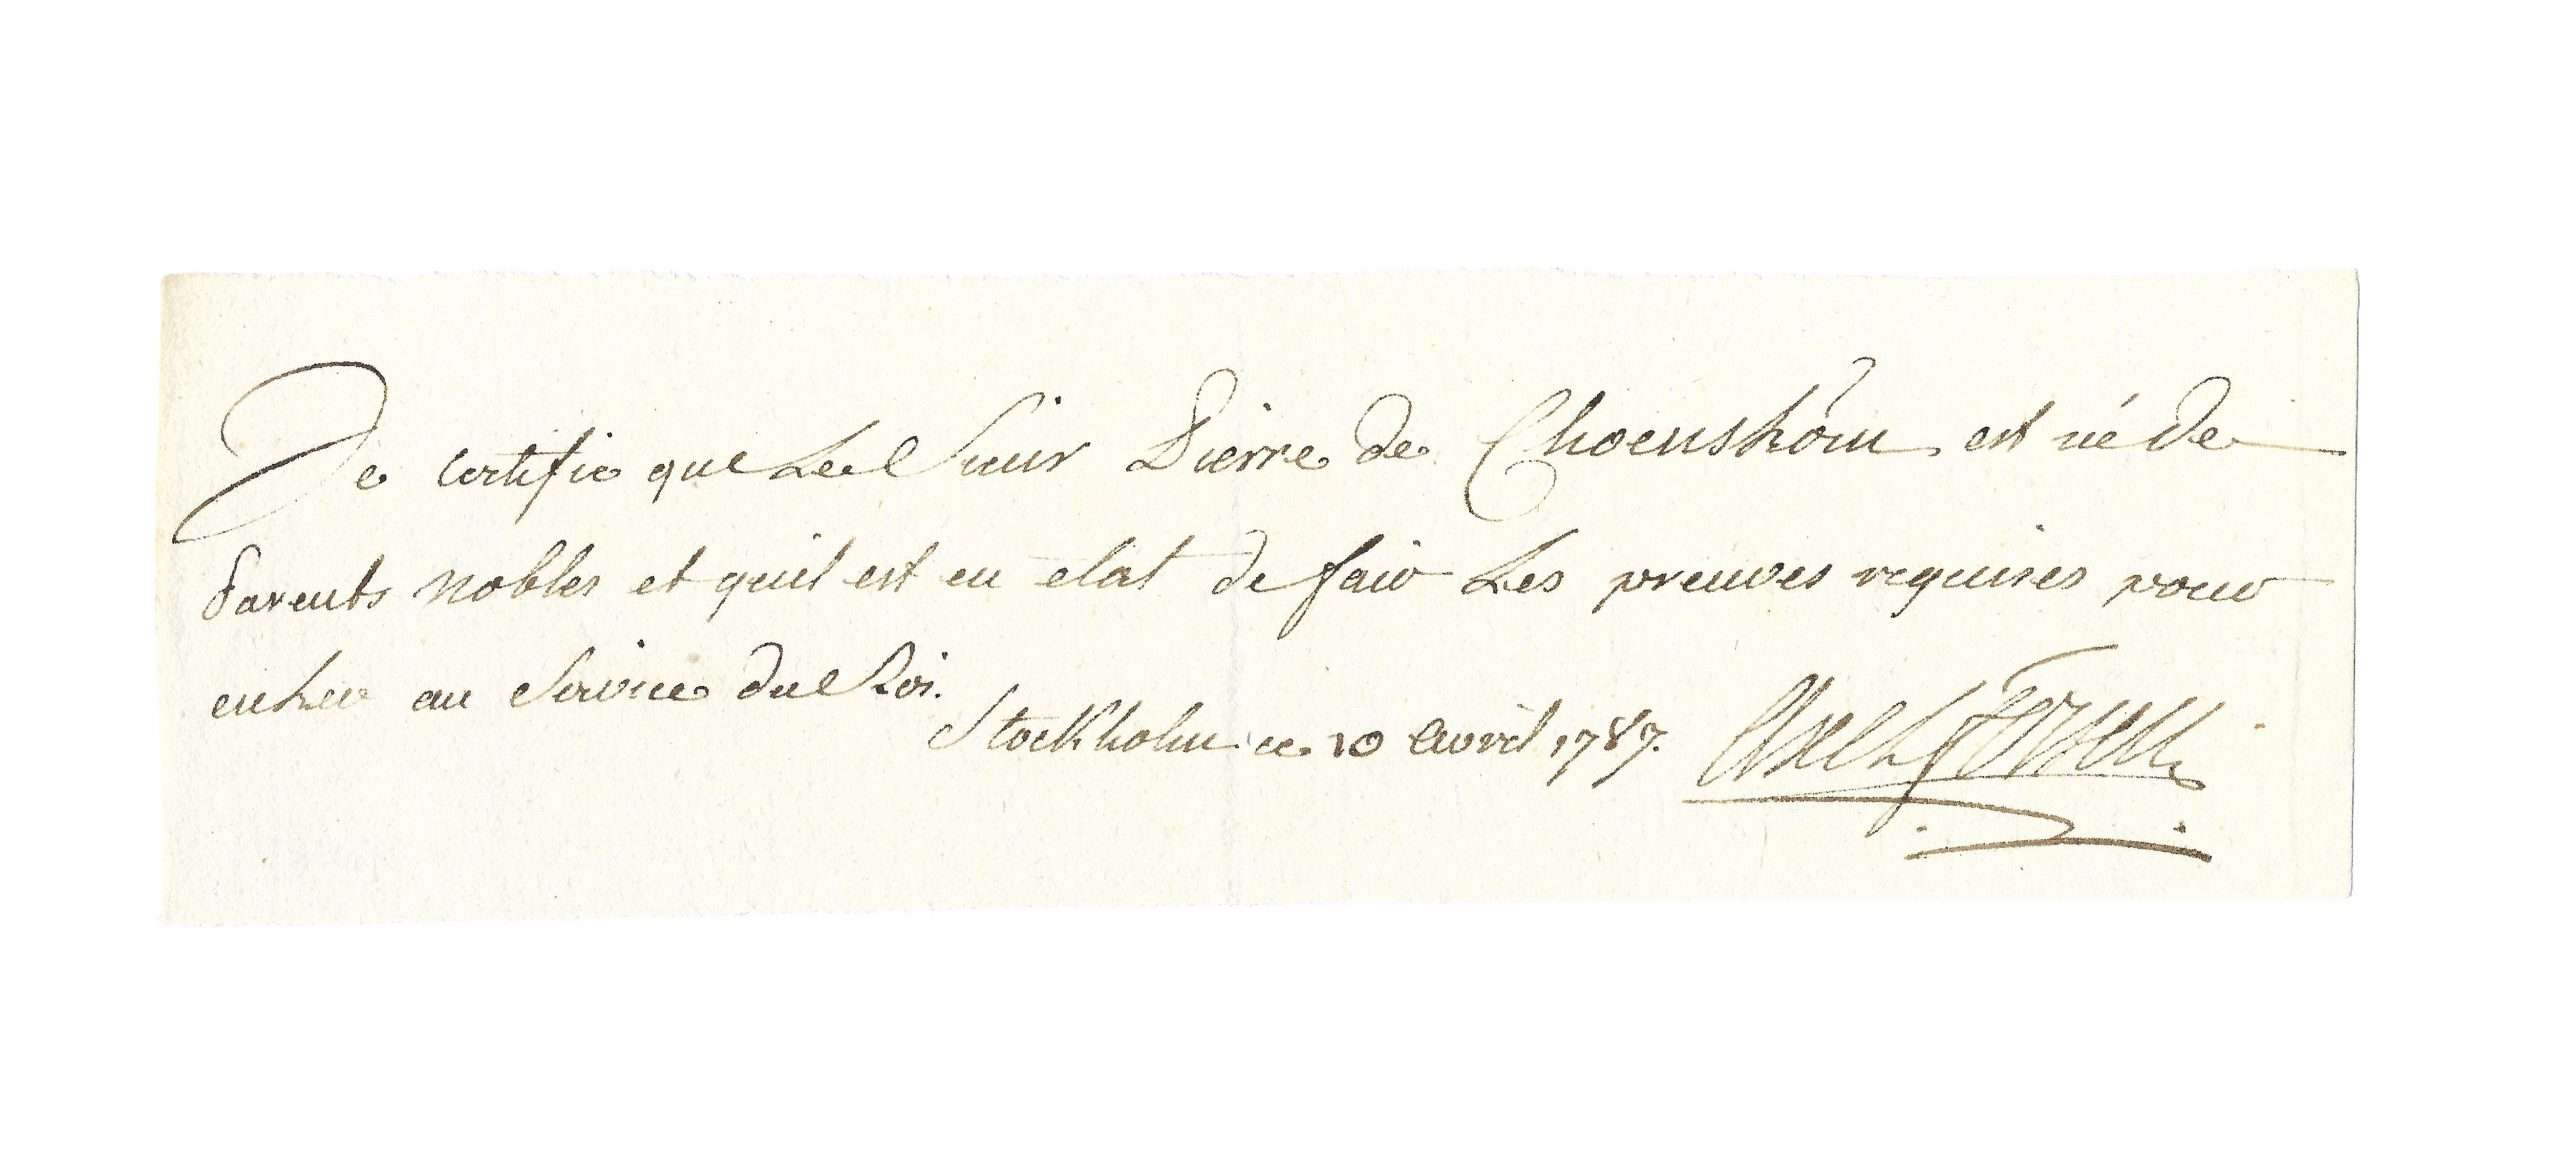 Je certifie que Le Sieur Pierre de Choenshöm est né de
Parents nobles et quil est en etat de faire Les preuves requises pour
entrer au Service du Roi.
Stockholm ce 10 Avril 1787. Axel Fersen